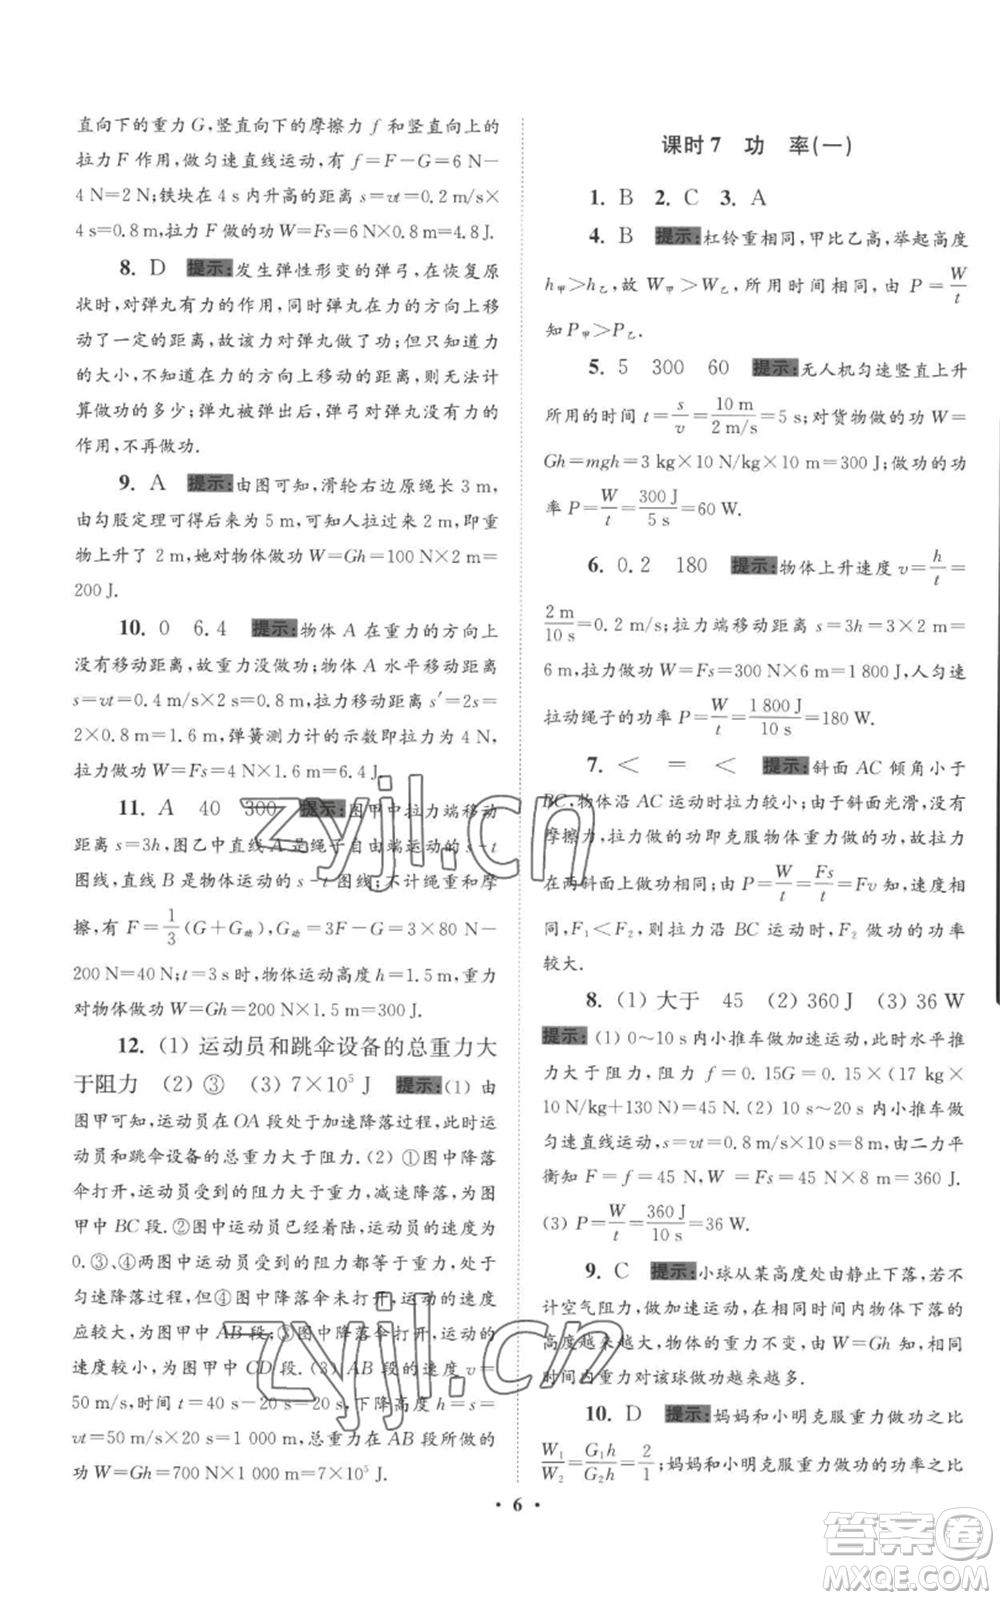 直向下的重力 G,竖直向下的摩擦力 f 和竖直向上的
拉力 F 作用,做匀速直线运动, f=F-G=6 N-
4 N=2 N;铁块在 4 s 内升高的距离 s=vt=0.2 m/s×
4 s=0.8 m,拉力 F 做的功 W=Fs=6 N×0.8 m=4.8 J.
8. D 提示:发生弹性形变的弹弓,在恢复原
状时,对弹丸有力的作用,同时弹丸在力的方向上移
动了一定的距离,故该力对弹丸做了功;但不知道力
的大小,不知道在力的方向上移动的距离,则无法计
算做功的多少;弹丸被弹出后,弹弓对弹丸没有力的
作用,不再做功.
9. A 提示:由图可知,滑轮右边原绳长 3 m,
由勾股定理可得后来为 5 m,可知人拉过来 2 m,即重
物上升了 2 m,她对物体做功 W=Gh=100 N×2 m=
200 J.
10. 0 6.4 提示:物体 A 在重力的方向上
没有移动距离,故重力没做功;物体 A 水平移动距离
s=vt=0.4 m/s×2 s=0.8 m,拉力移动距离 s′=2s=
2×0.8 m=1.6 m,弹簧测力计的示数即拉力为 4 N,
拉力做功 W=Fs=4 N×1.6 m=6.4 J.
11. A 40 300 提示:图甲中拉力端移动
距离 s=3h,图乙中直线 A 是绳子自由端运动的 s-t
图线,直线 B 是物体运动的 s-t 图线;不计绳重和摩
擦,有 F=1/3(G+G动),G动=3F-G=3×80 N-
200 N=40 N;t=3 s时,物体运动高度 h=1.5 m,重力
对物体做功 W=Gh=200 N×1.5 m=300 J.
12. (1) 运动员和跳伞设备的总重力大
于阻力 (2) ③ (3) 7×10⁵ J 提示:(1) 由
图甲可知,运动员在 OA 段处于加速降落过程,此时运
动员和跳伞设备的总重力大于阻力.(2) ①图中降落
伞打开,运动员受到的阻力大于重力,减速降落,为图
甲中 BC 段.②图中运动员已经着陆,运动员的速度为
0.③、④两图中运动员受到的阻力都等于重力,处于
匀速降落过程,但④图中降落伞未打开,运动的速度
应较大,为图甲中 AB 段;③图中降落伞打开,运动的
速度较小,为图甲中 CD 段. (3) AB 段的速度 v=
50 m/s,时间 t=40 s-20 s=20 s,下降高度 h=s=
vt=50 m/s×20 s=1 000 m,总重力在 AB 段所做的
功 W=Gh=700 N×1 000 m=7×10⁵ J.
课时 7 功 率(一)
1. B 2. C 3. A
4. B 提示:杠铃重相同,甲比乙高,举起高度
h甲>h乙,故 W甲>W乙,所用时间相同,由 P=W/t
知 P甲>P乙.
5. 5 300 60 提示:无人机匀速竖直上升
所用的时间 t=s/v=10 m/2 m/s=5 s;对货物做的功 W=
Gh=mgh=3 kg×10 N/kg×10 m=300 J;做功的功
率 P=W/t=300 J/5 s=60 W.
6. 0.2 180 提示:物体上升速度 v=h/t=
2 m/10 s=0.2 m/s;拉力端移动距离 s=3h=3×2 m=
6 m,拉力做功 W=Fs=300 N×6 m=1 800 J,人匀速
拉动绳子的功率 P=W/t=1 800 J/10 s=180 W.
7. < = < 提示:斜面 AC 倾角小于
BC,物体沿 AC 运动时拉力较小;由于斜面光滑,没有
摩擦力,拉力做的功即克服物体重力做的功,故拉力
在两斜面上做功相同;由 P=W/t=Fs/t=Fv 知,速度相
同,F₁<F₂,故拉力沿 BC 运动时,F₂ 做功的功率
较大.
8. (1) 大于 45 (2) 360 J (3) 36 W
提示:(1) 0~10 s 内小推车做加速运动,此时水平推
力大于阻力,阻力 f=0.15G=0.15×(17 kg×
10 N/kg+130 N)=45 N.(2) 10 s~20 s 内小推车做
匀速直线运动,s=vt=0.8 m/s×10 s=8 m,由二力平
衡知 F=f=45 N,W=Fs=45 N×8 m=360 J.
(3) P=W/t=360 J/10 s=36 W.
9. C 提示:小球从某高度处由静止下落,若不
计空气阻力,做加速运动,在相同时间内物体下落的
高度越来越大,物体的重力不变,由 W=Gh 知,相同
时间内重力对该球做功越来越多.
10. D 提示:妈妈和小明克服重力做功之比
W₁/W₂=G₁h/G₂h=2/1;妈妈和小明克服重力做功的功率之比
• 6 •
zyjl.cn
zyjl.cn
答案圈
MXQE.COM